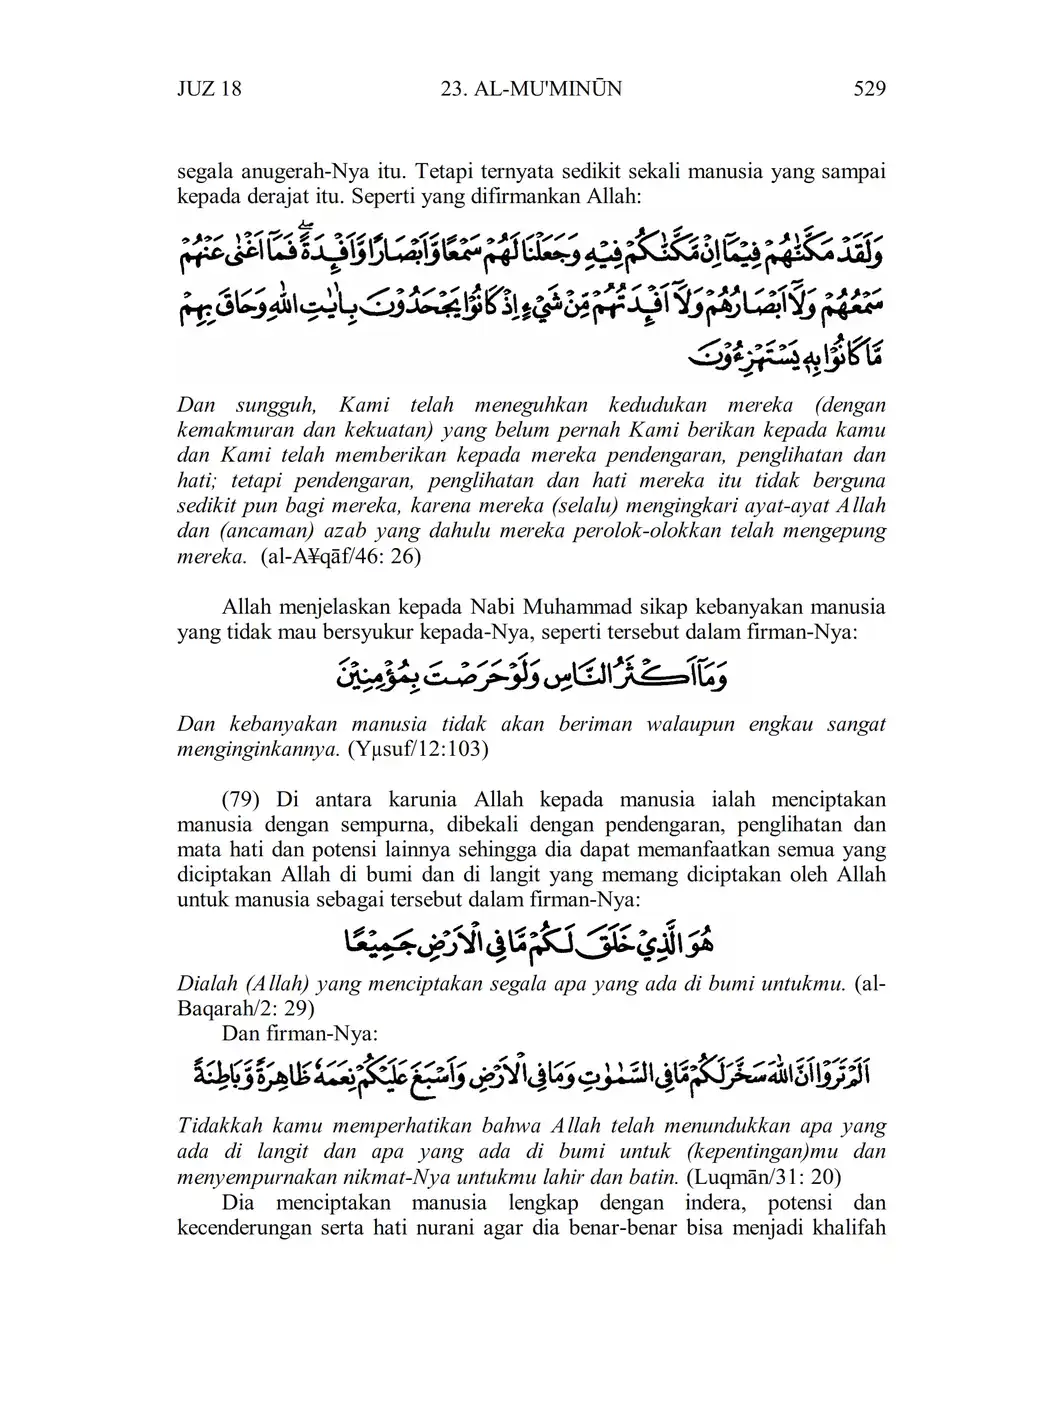 JUZ 18 23. AL-MU'MINŪN 529
segala anugerah-Nya itu. Tetapi ternyata sedikit sekali manusia yang sampai
kepada derajat itu. Seperti yang difirmankan Allah:
وَلَقَدْ مَكَّنّٰهُمْ فِيْمَآ اِنْ مَّكَّنّٰكُمْ فِيْهِ وَجَعَلْنَا لَهُمْ سَمْعًا وَّاَبْصَارًا وَّاَفْـِٕدَةًۖ فَمَآ اَغْنٰى عَنْهُمْ
سَمْعُهُمْ وَلَآ اَبْصَارُهُمْ وَلَآ اَفْـِٕدَتُهُمْ مِّنْ شَيْءٍ اِذْ كَانُوْا يَجْحَدُوْنَ بِاٰيٰتِ اللّٰهِ وَحَاقَ بِهِمْ
مَّا كَانُوْا بِهٖ يَسْتَهْزِءُوْنَ
Dan sungguh, Kami telah meneguhkan kedudukan mereka (dengan
kemakmuran dan kekuatan) yang belum pernah Kami berikan kepada kamu
dan Kami telah memberikan kepada mereka pendengaran, penglihatan dan
hati; tetapi pendengaran, penglihatan dan hati mereka itu tidak berguna
sedikit pun bagi mereka, karena mereka (selalu) mengingkari ayat-ayat Allah
dan (ancaman) azab yang dahulu mereka perolok-olokkan telah mengepung
mereka. (al-A¥qāf/46: 26)
Allah menjelaskan kepada Nabi Muhammad sikap kebanyakan manusia
yang tidak mau bersyukur kepada-Nya, seperti tersebut dalam firman-Nya:
وَمَآ اَكْثَرُ النَّاسِ وَلَوْ حَرَصْتَ بِمُؤْمِنِيْنَ
Dan kebanyakan manusia tidak akan beriman walaupun engkau sangat
menginginkannya. (Yµsuf/12:103)
(79) Di antara karunia Allah kepada manusia ialah menciptakan
manusia dengan sempurna, dibekali dengan pendengaran, penglihatan dan
mata hati dan potensi lainnya sehingga dia dapat memanfaatkan semua yang
diciptakan Allah di bumi dan di langit yang memang diciptakan oleh Allah
untuk manusia sebagai tersebut dalam firman-Nya:
هُوَ الَّذِيْ خَلَقَ لَكُمْ مَّا فِى الْاَرْضِ جَمِيْعًا
Dialah (Allah) yang menciptakan segala apa yang ada di bumi untukmu. (al-
Baqarah/2: 29)
Dan firman-Nya:
اَلَمْ تَرَوْا اَنَّ اللّٰهَ سَخَّرَ لَكُمْ مَّا فِى السَّمٰوٰتِ وَمَا فِى الْاَرْضِ وَاَسْبَغَ عَلَيْكُمْ نِعَمَهٗ ظَاهِرَةً وَّبَاطِنَةً
Tidakkah kamu memperhatikan bahwa Allah telah menundukkan apa yang
ada di langit dan apa yang ada di bumi untuk (kepentingan)mu dan
menyempurnakan nikmat-Nya untukmu lahir dan batin. (Luqmān/31: 20)
Dia menciptakan manusia lengkap dengan indera, potensi dan
kecenderungan serta hati nurani agar dia benar-benar bisa menjadi khalifah